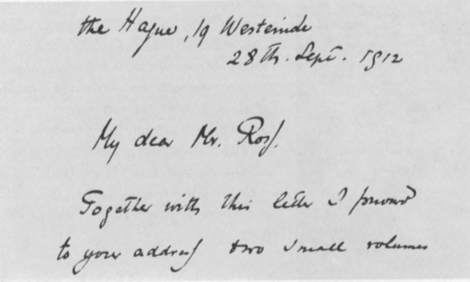 the Hague, 19 Westeinde
28th. Sept. 1912
My dear Mr. Ross.
Together with this letter I forward
to your address two small volumes